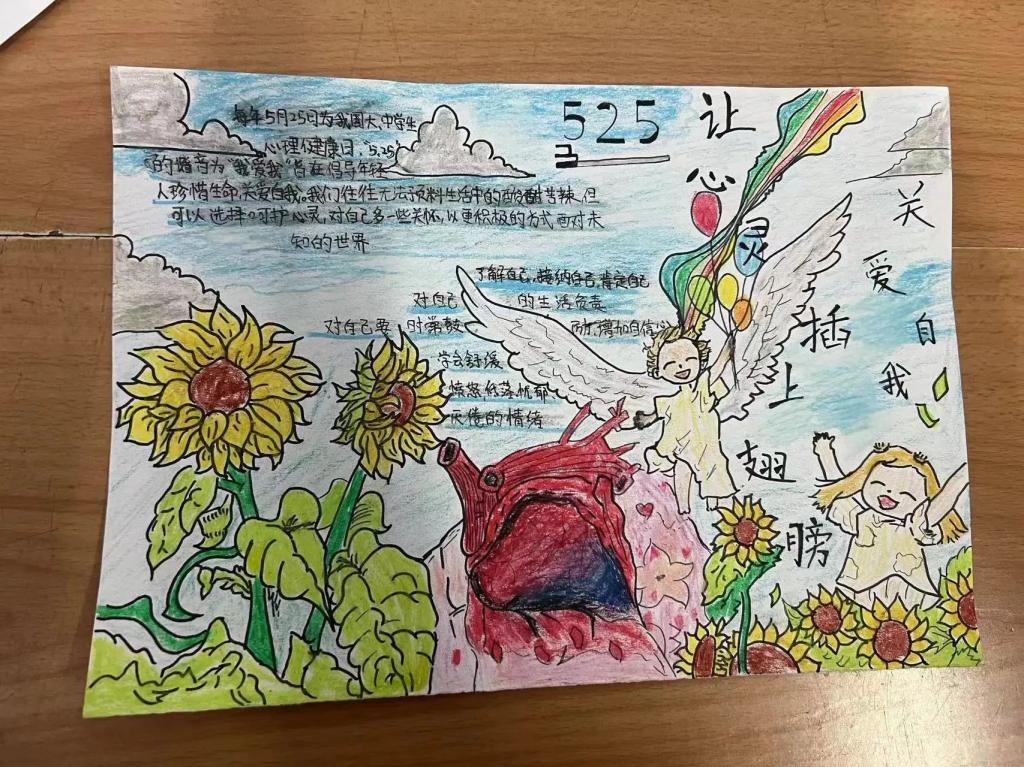 每年5月25日为我国大、中学生
心理健康日,"5.25"
的谐音为"我爱我"旨在倡导年轻
人珍惜生命,关爱自我。我们往往无法预料生活中的酸甜苦辣,但
可以选择呵护心灵,对自己多一些关怀,以更积极的方式面对未
知的世界
了解自己,接纳自己,肯定自己
对自己 的生活负责
对自己要 时常鼓 励,增加自信心
学会舒缓
愤怒低落忧郁
厌倦的情绪
525
让心灵插上翅膀
关爱自我